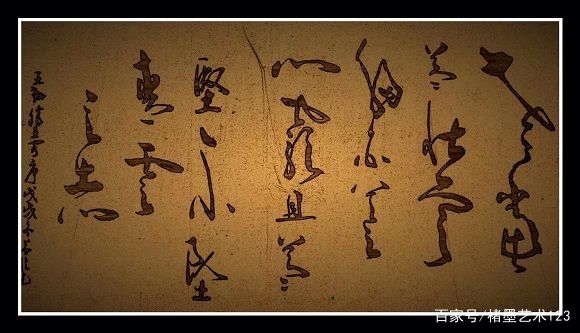 老當
益壯寧
移白首之
心窮且益
堅不墜
青雲
之志
王勃滕王阁序戊戌年
百家号/楮墨艺术123